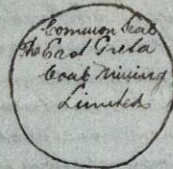 Common Seal
The East Greta
Coal Mining
Limited